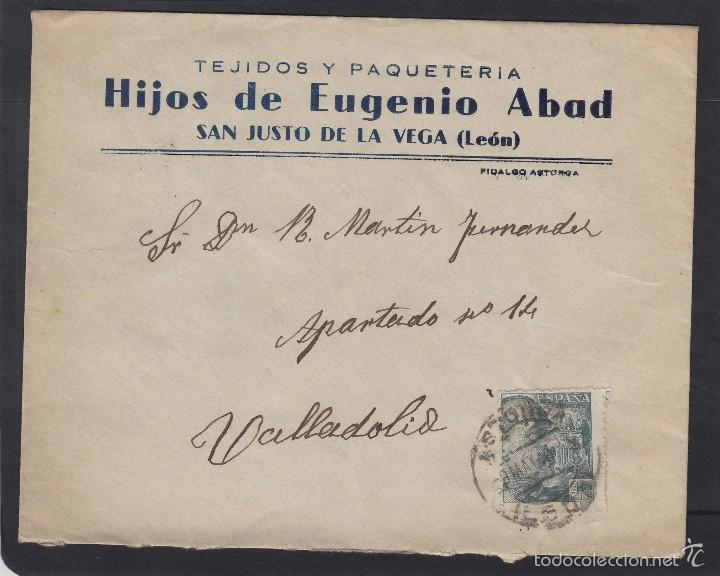 TEJIDOS Y PAQUETERIA
Hijos de Eugenio Abad
SAN JUSTO DE LA VEGA (León)
FIDALGO ASTORGA
Sr Dn R. Martin Fernandez
Apartado nº 14
Valladolid
ESPAÑA
todocoleccion